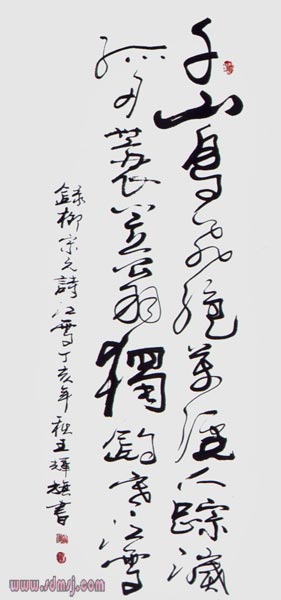 千山鳥飛絕萬徑人踪滅
孤舟蓑笠翁獨釣寒江雪
錄柳宗元詩江雪丁亥年秋王書
www.sdmsj.com